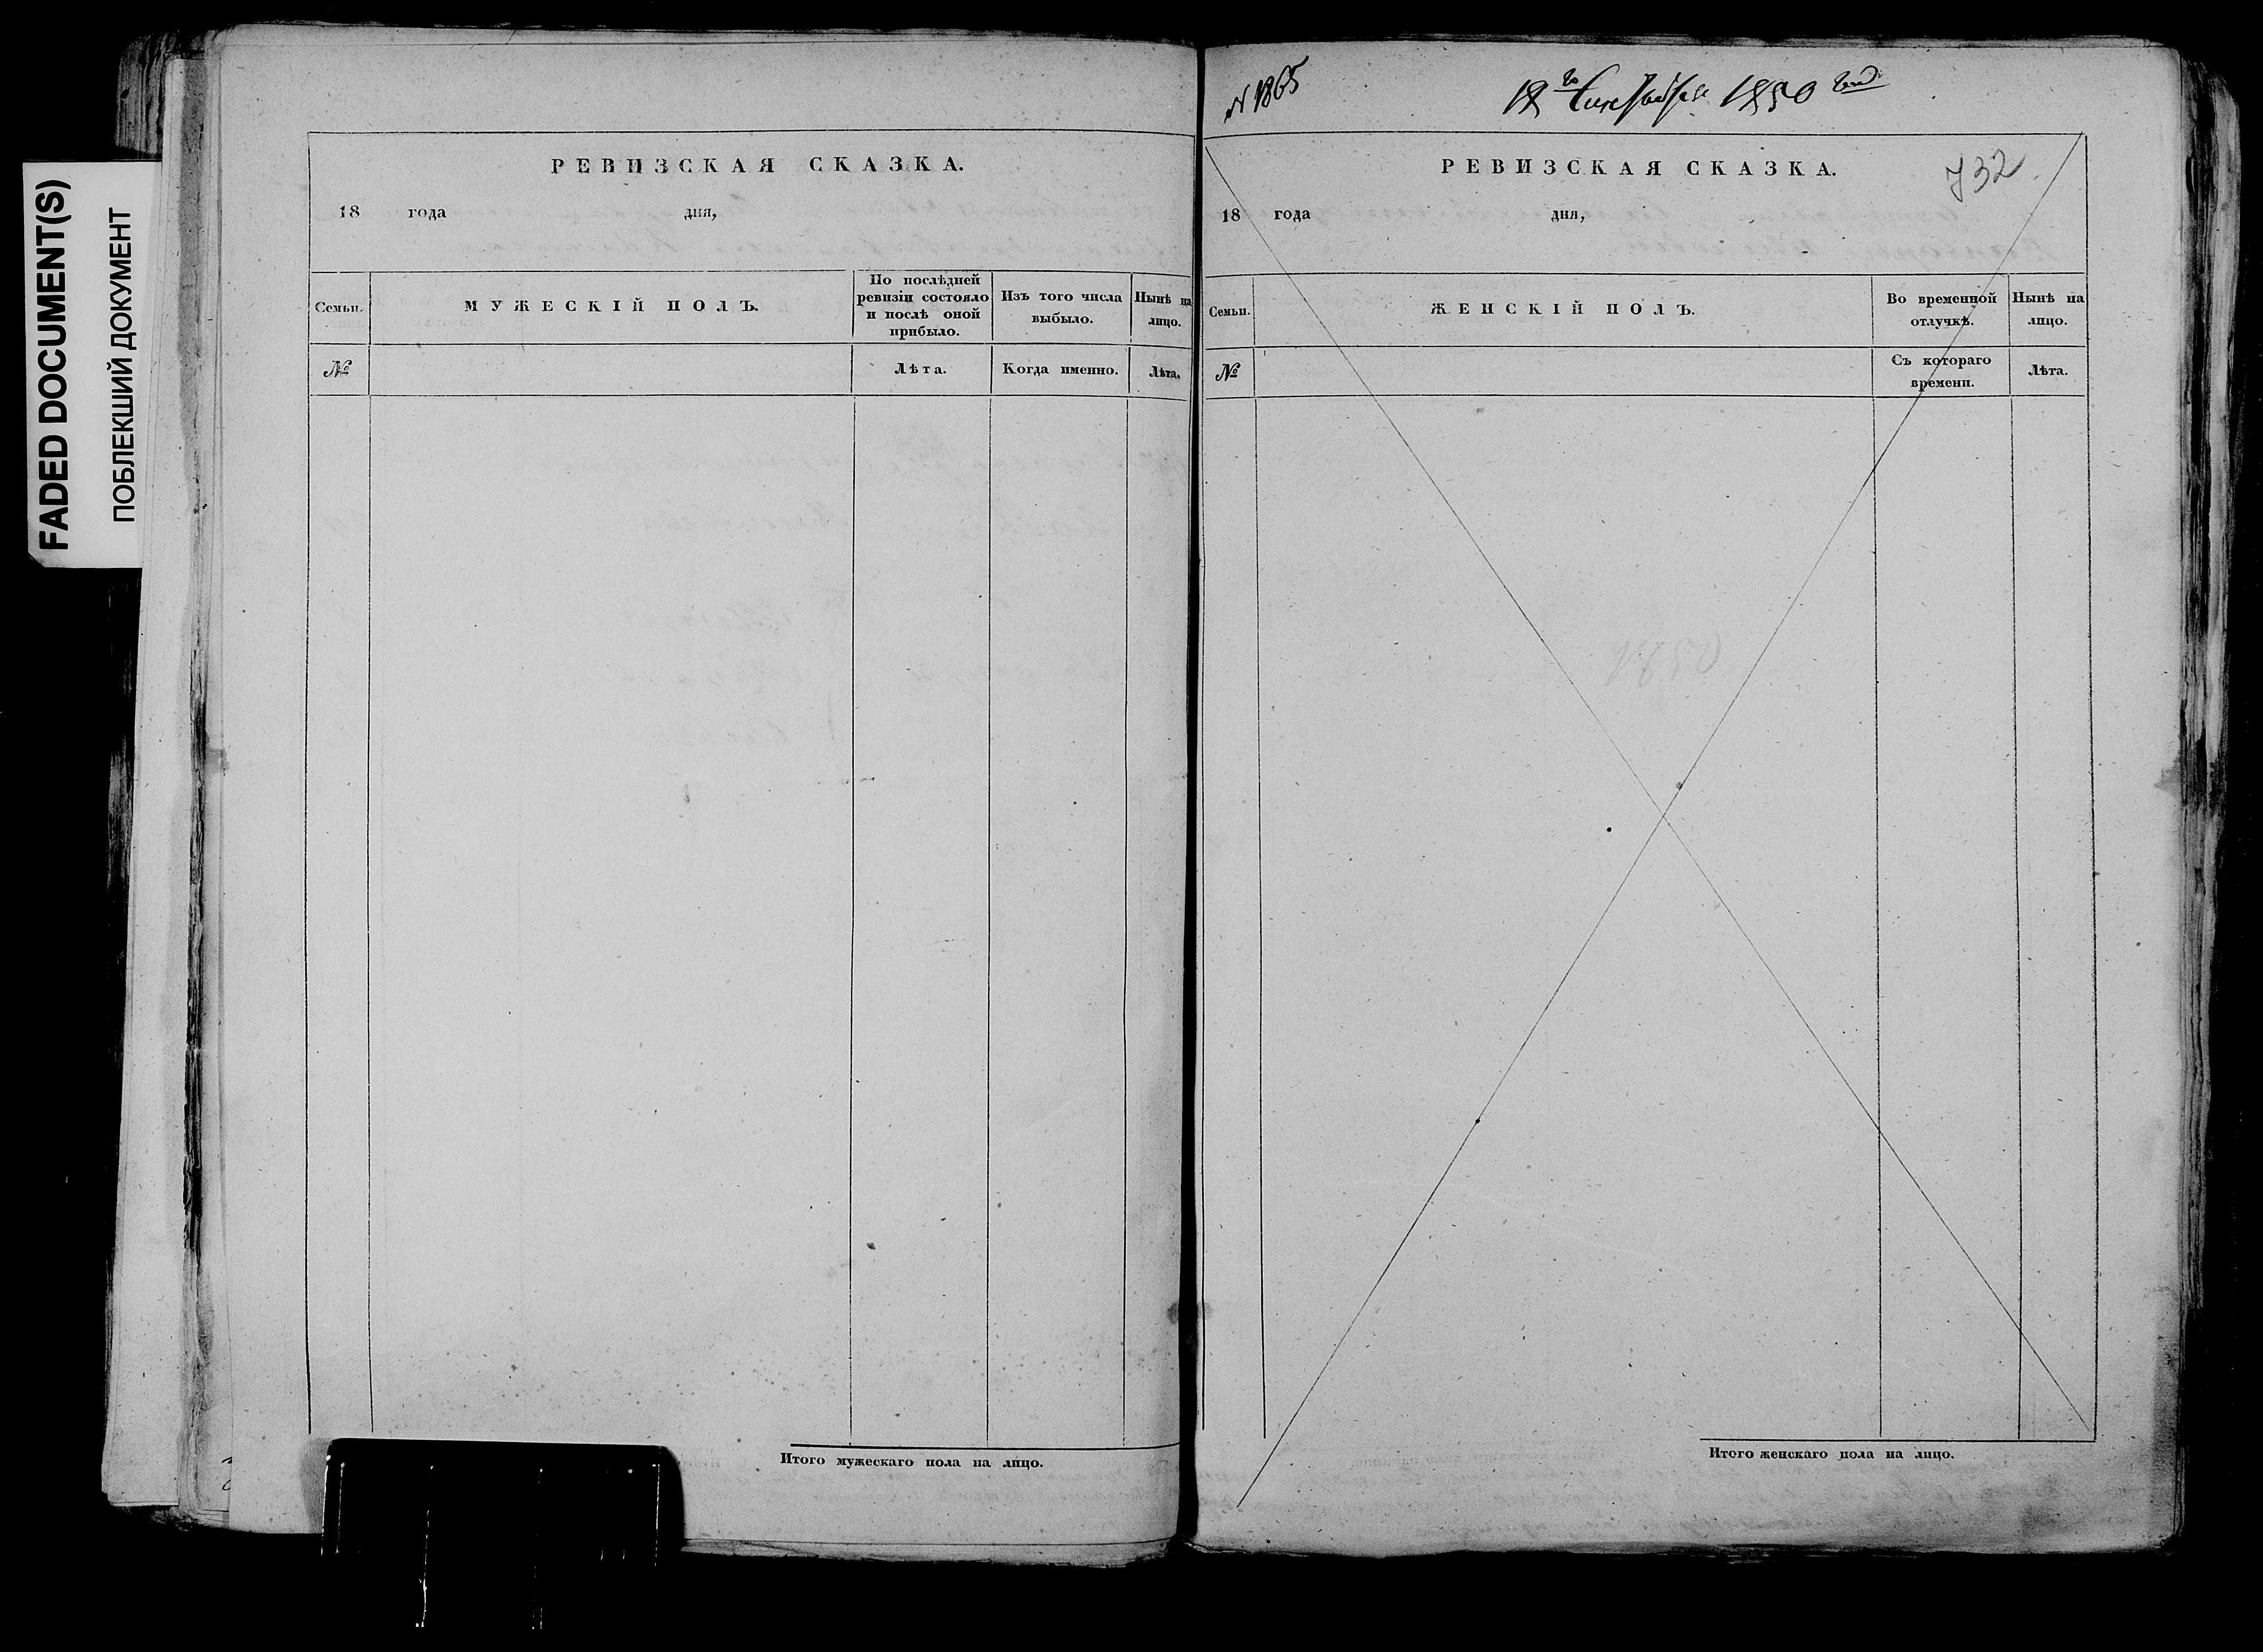 FADED DOCUMENT(S)
ПОБЛЕКШИЙ ДОКУМЕНТ
РЕВИЗСКАЯ СКАЗКА.
18 года дня,
Семьи.
МУЖЕСКІЙ ПОЛЪ.
По послѣдней
ревизіи состояло
и послѣ оной
прибыло.
Изъ того числа
выбыло.
Нынѣ на
лицо.
№
Лѣта.
Когда именно.
Лѣта.
Итого мужескаго пола на лицо.
N 1865
18го Сентября 1850 года
732
РЕВИЗСКАЯ СКАЗКА.
18 года дня,
Семьи.
ЖЕНСКІЙ ПОЛЪ.
Во временной
отлучкѣ.
Нынѣ на
лицо.
№
Съ котораго
времени.
Лѣта.
Итого женскаго пола на лицо.